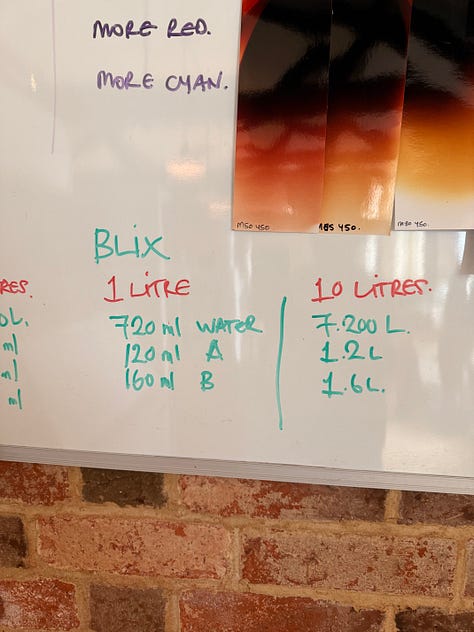 MORE RED.
MORE CYAN.
M50 450
M65 450.
M80 450.
BLIX
RES.
1 LITRE
10 LITRES.
0L.
720 ml WATER
7.200 L.
ml
120 ml A
1.2 L
ml
160 ml B
1.6 L.
ml